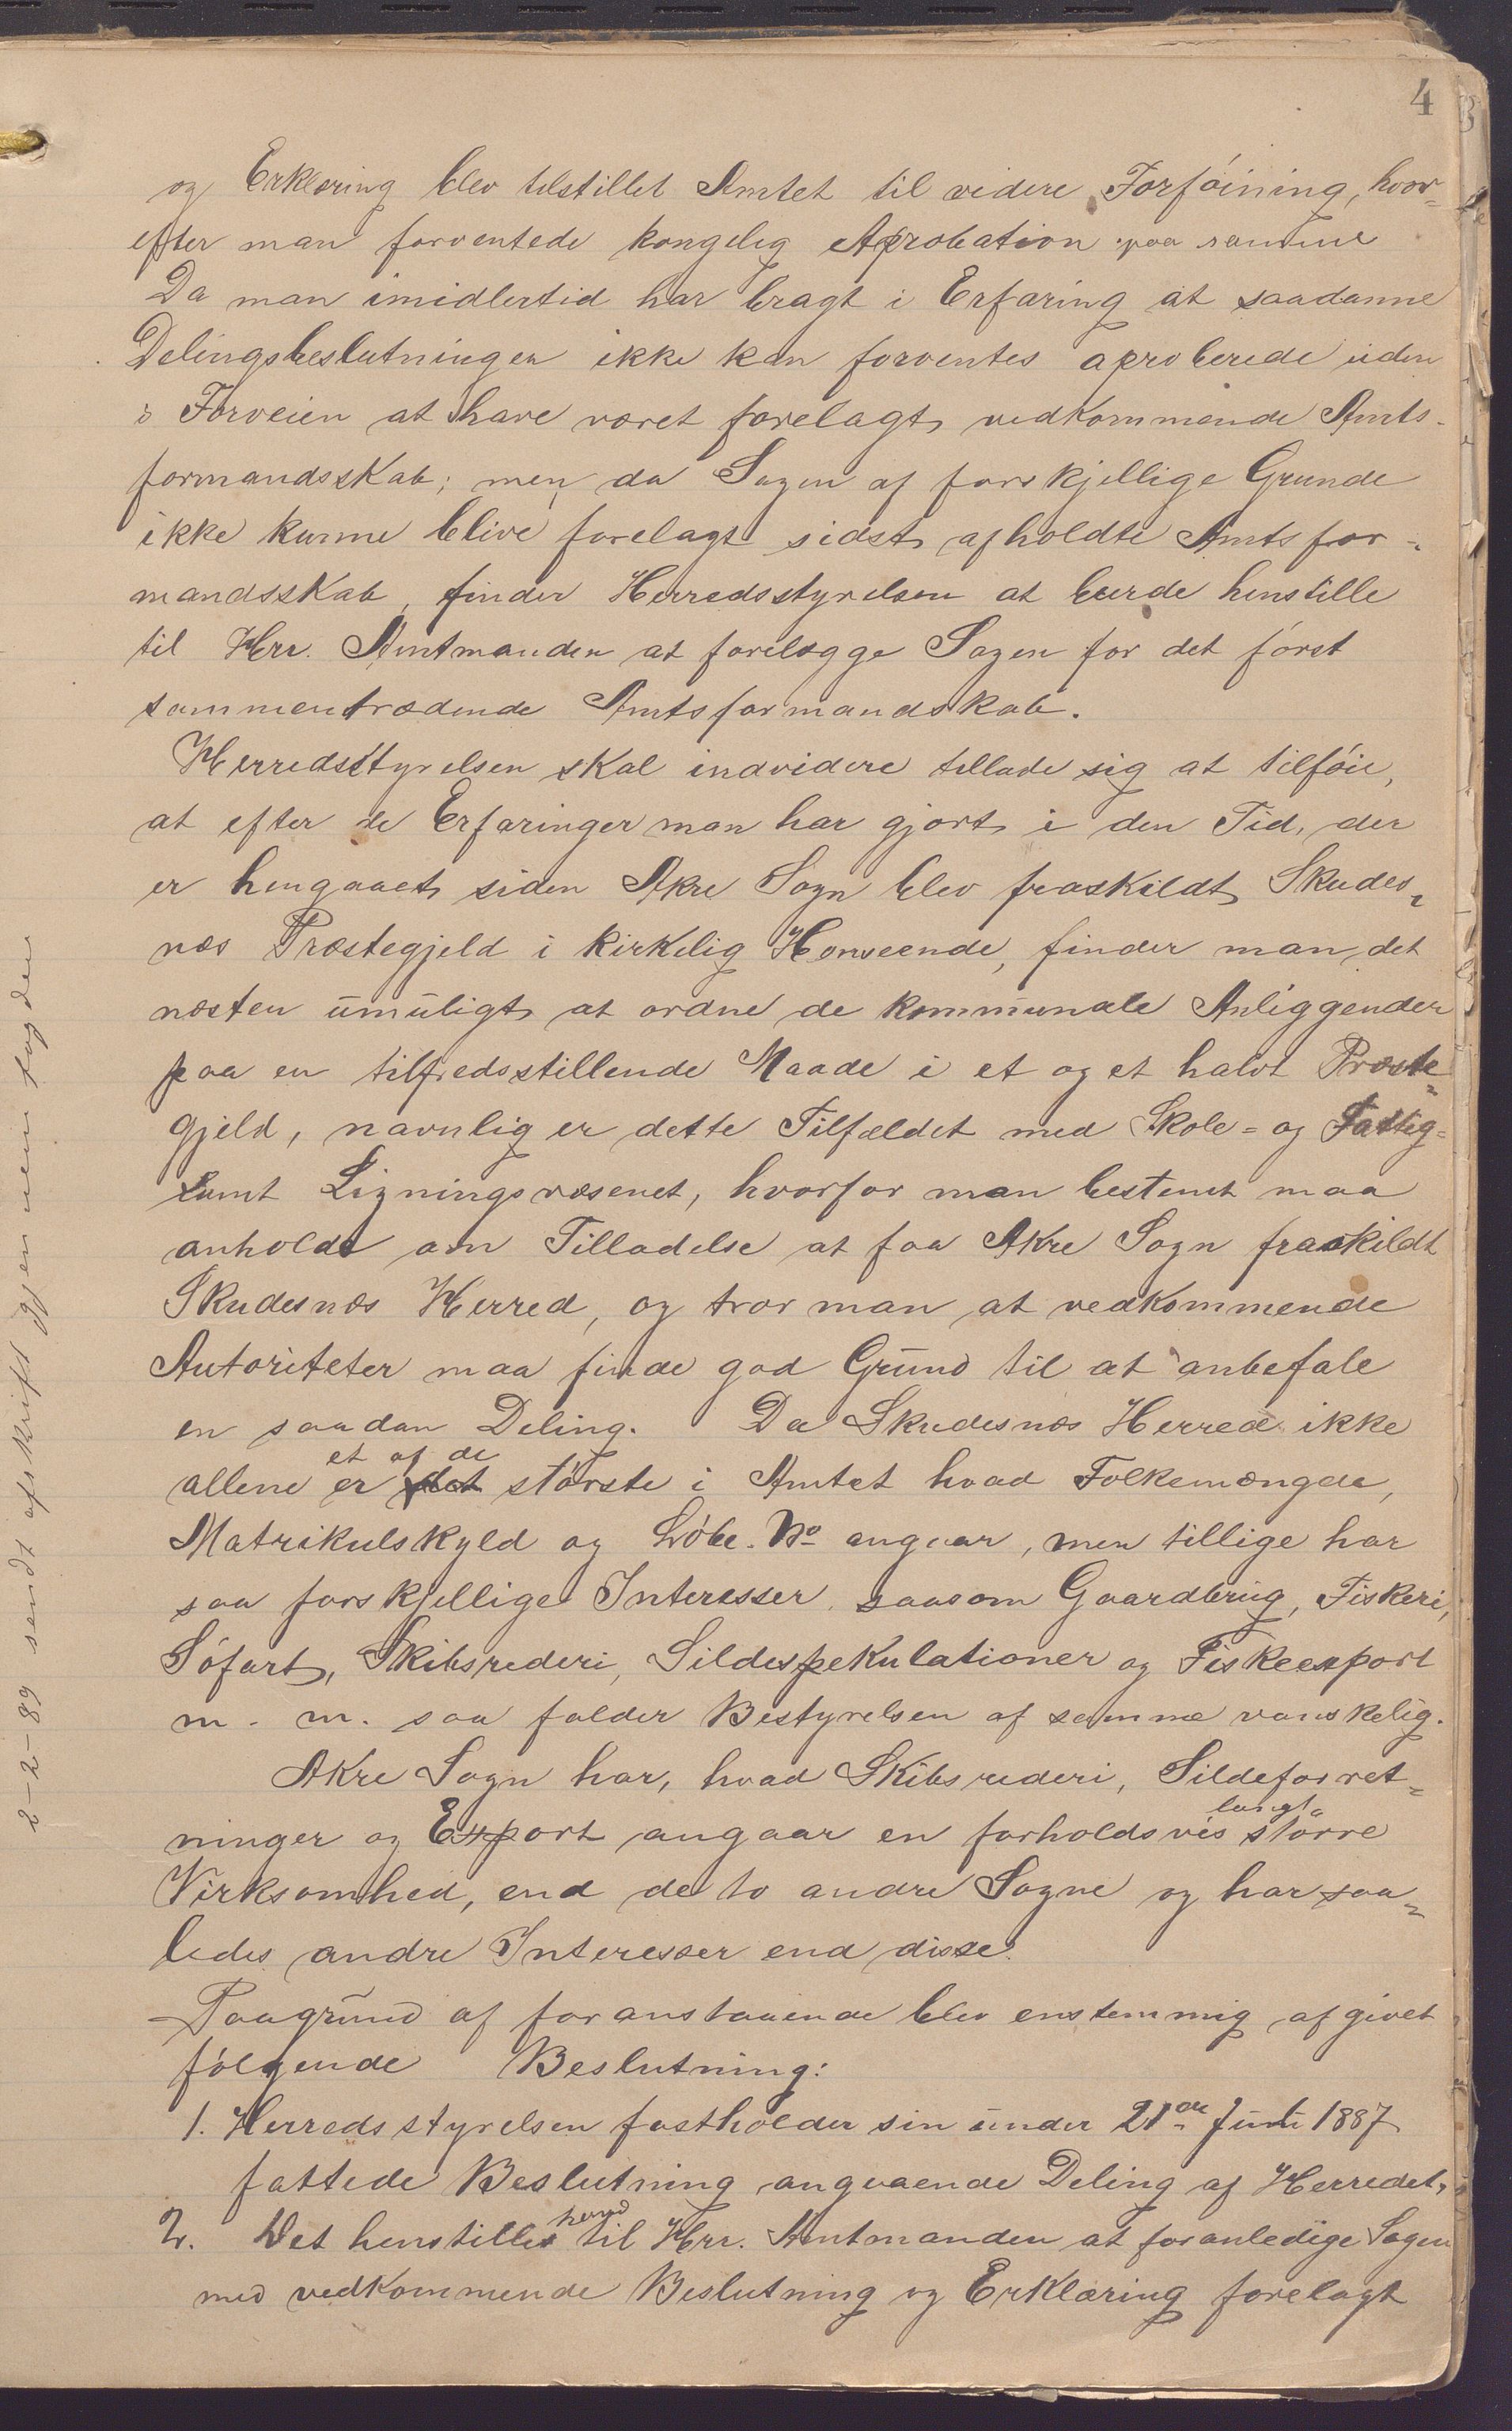 4
og Erklæring blev tilstillet Amtet til videre Forföining, hvor-
efter man forventede kongelig Aprobation paa samme
Da man imidlertid har bragt i Erfaring at saadanne
Delingsbeslutninger ikke kan forventes aproberede uden
i Forveien at have været forelagt vedkommende Amts-
formandsskab; men da Sagen af forskjellige Grunde
ikke kunne blive forelagt sidst afholdte Amtsfor-
mandsskab, finder Herredsstyrelsen at burde henstille
til Hrr. Amtmanden at forelægge Sagen for det först
sammentrædende Amtsformandskab.
Herredsstyrelsen skal indvidere tillade sig at tilföie,
at efter de Erfaringer man har gjort i den Tid, der
er hengaaet siden Akre Sogn blev fraskildt Skudes-
næs Præstegjeld i kirkelig Henseende, finder man det
næsten umuligt at ordne de kommunale Anliggender
paa en tilfredsstillende Maade i et og et halvt Præste-
gjeld, navnlig er dette Tilfældet med Skole- og Fattig-
samt Ligningsvæsenet, hvorfor man bestemt maa
anholde om Tilladelse at faa Akre Sogn fraskildt
Skudesnæs Herred, og tror man at vedkommende
Autoriteter maa finde god Grund til at anbefale
en saadan Deling. Da Skudesnæs Herred ikke
et af de
allene er det störste i Amtet hvad Folkemængde,
Matrikulskyld og Löbe. No angaar, men tillige har
saa forskjellige Interesser saasom Gaardbrug, Fiskeri,
Söfart, Skibsrederi, Sildespekulationer og Fiskeexport
m. m. saa falder Bestyrelsen af samme vanskelig.
Akre Sogn har, hvad Skibsrederi, Sildeforret-
langt
ninger og Export angaar en forholdsvis större
Virksomhed, end de to andre Sogne og har saa-
ledes andre Interesser end disse.
Paagrund af foranstaaende blev enstemmig afgivet
fölgende Beslutning:
1. Herredsstyrelsen fastholder sin under 21de Juni 1887
fattede Beslutning angaaende Deling af Herredet,
2. Det henstilles til Hrr. Amtmanden at foranledige Sagen
med vedkommende Beslutning og Erklæring forelagt
2-2-89 sendt afskrift igjen